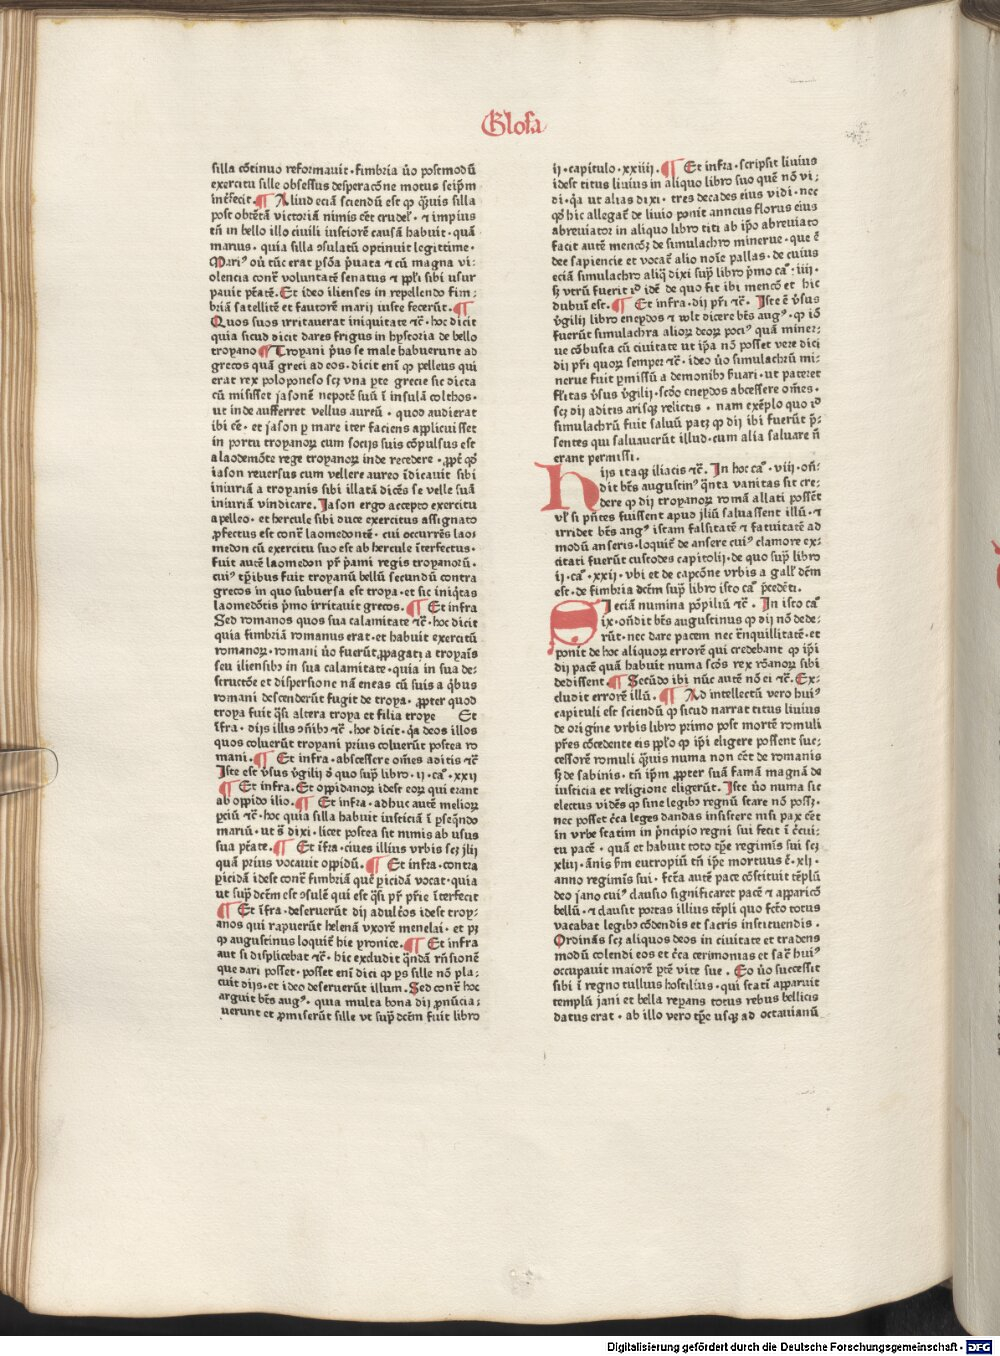 Glosa
silla cōtinuo reformauit · fimbria ūo postmodū
exercitu sille obsessus desperacōne motus seip̄m
int̄fecit · ¶ Aliud eciā sciendū est ꝙ q̄uis silla
post obtētā victoriā nimis cēt crudel̓ · ⁊ impius
tn̄ in bello illo ciuili iustiorē causā habuit · quā
marius · quia silla ꝯsulatū optinuit legittime ·
Mariꝰ oū tūc erat ꝑsōa p̄uata ⁊ cū magna vi⸗
olencia contr̄ voluntatē senatus ⁊ ppl̓i sibi usur
pauit ptātē · Et ideo ilienses in repellendo fim⸗
briā satellitē et fautorē marij iuste fecerūt · ¶
Quos suos irritauerat iniquitate ⁊c̄ · hoc dicit
quia sicud dicit dares frigus in hystoria de bello
troyano ¶ Troyani p̄us se male habuerunt ad
grecos quā greci ad eos · dicit enī ꝙ pelleus qui
erat rex poloponeso scꝫ vna ꝑte grecie sic dicta
cū misisset jasonē nepotē suū ī insulā colchos ·
ut inde aufferret vellus aureū · quod audierat
ibi cē · et jason ꝑ mare iter faciens applicuisset
in portu troyanoꝝ cum socijs suis cōpulsus est
a laodemōte rege troyanoꝝ inde recedere · ꝓpt̄ qd̓
iason reuersus cum vellere aureo īdicauit sibi
iniuriā a troyanis sibi illatā dicēs se velle suā
iniuriā vindicare · Jason ergo accepto exercitu
a pelleo · et hercule sibi duce exercitus assignato
ꝓfectus est contr̄ laomedontē · cui occurrēs lao⸗
medon cū exercitu suo est ab hercule īterfectus ·
fuit autē laomedon pr̄ p̄ami regis troyanorū ·
cuiꝰ tp̄ibus fuit troyanū bellū secundū contra
grecos in quo subuersa est troya · et sic iniq̄tas
laomedōtis p̄mo irritauit grecos · ¶ Et infra
Sed romanos quos sua calamitate ⁊c̄ · hoc dicit
quia fimbriā romanus erat · et habuit exercitū
romanoꝝ · romani ūo fuerūt ꝓpagati a troyaīs
seu iliensibꝰ in sua calamitate · quia in sua de⸗
structōe et dispersione nā eneas cū suis a q̄bus
romani descenderūt fugit de troya · ꝓpter quod
troya fuit q̄si altera troya et filia troye Et
īfra · dijs illis oīnibꝰ ⁊c̄ · hoc dicit · q̄a deos illos
quos coluerūt troyani prius coluerūt postea ro
mani · ¶ Et infra · abscessere om̄es aditis ⁊c̄
Iste est v̄sus v̄gilij ō quo sup̄ libro · ij · caͫ · xxij
¶ Et infra · Et oppidanoꝝ idest eoꝝ qui erant
ab oppido ilio · ¶ Et infra · adhuc autē melioꝝ
ꝑciū ⁊c̄ · hoc quia silla habuit iusticiā ī ꝑseq̄ndo
mariū · ut s̄ dixi · licet postea sit nimis ab usus
sua ptāte · ¶ Et īfra · ciues illius vrbis scꝫ jlij
quā prius vocauit oppidū · ¶ Et infra · contra
ꝑicidā idest contr̄ fimbriā quē ꝑicidā vocat · quia
ut sup̄ dc̄m est ꝯsulē qui est q̄si pr̄ pr̄ie īterfecit
¶ Et īfra · deseruerūt dij adult̄os idest troy⸗
anos qui rapuerūt helenā vxorē menelai · et pꝫ
ꝙ augustinus loquit̄ hic yronice · ¶ Et infra
aut si displicebat ⁊c̄ · hic excludit q̄ndā rn̄sionē
que dari posset · posset enī dici ꝙ ꝑs sille nō pla⸗
cuit dijs · et ideo deseruerūt illum · Sed contr̄ hoc
arguit bt̄s augꝰ · quia multa bona dij ꝓnūcia⸗
uerunt et ꝓmiserūt sille vt sup̄ dc̄m fuit libro
ij · capitulo · xxiiij · ¶ Et infra · scripsit liuius
idest titus liuius in aliquo libro suo quē nō vi⸗
di · q̄a ut alias dixi · tres decades eius vidi · nec
qd̓ hic allegat̄ de liuio ponit anneus florus eius
abreuiator in aliquo libro titi ab ip̄o abreuiato
facit autē mencōꝫ de simulachro minerue · que ē
dee sapiencie et vocat̄ alio noīe pallas · de cuius
eciā simulachro aliq̄ dixi sup̄ libro p̄mo caͦ · iij ·
sꝫ verū fuerit id̓ idē de quo fit ibi mencō et hic
dubiū est · ¶ Et infra · dij pr̄i ⁊c̄ · Iste ē v̄sus
v̄gilij libro eneydos ⁊ vult dicere bt̄s augꝰ · ꝙ iō
fuerūt simulachra alioꝝ deoꝝ pociꝰ quā miner⸗
ue cōbusta cū ciuitate ut ip̄a nō posset vere dici
dij pr̄i quoꝝ semper ⁊c̄ · ideo ūo simulachrū mi⸗
nerue fuit ꝑmissū a demonibꝰ s̄uari · ut pateret
fl̄itas v̄sus v̄gilij · scd̓o eneydos abcessere om̄es ·
scꝫ dij aditis arisqꝫ relictis · nam exēplo quo id̓
simulachrū fuit saluū patꝫ ꝙ dij ibi fuerūt p̄⸗
sentes qui saluauerūt illud · cum alia saluare n̄
erant permissi ·
Hijs itaqꝫ iliacis ⁊c̄ · In hoc caͦ · viij · on̄⸗
dit bt̄s augustinꝰ q̄nta vanitas sit cre⸗
dere ꝙ dij troyanoꝝ romā allati possēt
vl̓ si pn̄tes fuissent apud jliū saluassent illū · ⁊
irridet bt̄s augꝰ istam falsitatē ⁊ fatuitatē ad
modū anseris · loquit̄ de ansere cuiꝰ clamore ex⸗
citati fuerūt custodes capitolij · de quo sup̄ libro
ij · caͦ · xxij · vbi et de capcōne vrbis a gall̓ dc̄m
est · de fimbria dc̄m sup̄ libro isto caͦ p̄cedēti ·
Si eciā numina pōpiliū ⁊c̄ · In isto caͦ
ix · on̄dit bt̄s augustinus ꝙ dij nō dede⸗
rūt · nec dare pacem nec t̄nquillitatē · et
ponit de hoc aliquoꝝ errorē qui credebant ꝙ ip̄i
dij pacē quā habuit numa scd̓s rex rōanoꝝ sibi
dedissent · ¶ Secūdo ibi nūc autē nō ei ⁊c̄ · Ex⸗
cludit errorē illū · ¶ Ad intellectū vero huiꝰ
capituli est sciendū ꝙ sicud narrat titus liuius
de origine vrbis libro primo post mortē romuli
pr̄es cōcedente eis ppl̓o ꝙ ip̄i eligere possent suc⸗
cessorē romuli q̄uis numa non cēt de romanis
sꝫ de sabinis · tn̄ ip̄m ꝓpter suā famā magnā de
iusticia et religione eligerūt · Iste ūo numa sic
electus vidēs ꝙ sine legibꝰ regnū stare nō possꝫ ·
nec posset cc̄a leges dandas insistere nisi pax cēt
in vrbe statim in p̄ncipio regni sui fecit ī c̄cui⸗
tu pacē · quā et habuit toto tp̄e regimīs sui scꝫ
xliij · ānis scd̓m eutropiū tn̄ ip̄e mortuus ē · xli ·
anno regimīs sui · fc̄ta autē pace cōstituit tēplū
deo jano cuiꝰ clausio significaret pacē ⁊ apparicō
bellū · ⁊ clausit portas illius tēpli quo fc̄to totus
vacabat legibꝰ cōdendis et sacris instituendis ·
Ordināns scꝫ aliquos deos in ciuitate et tradens
modū colendi eos et cc̄a cerimonias et sac̄ huiꝰ
occupauit maiorē ꝑtē vite sue · Eo ūo successit
sibi ī regno tullius hostilius · qui stati apparuit
templū jani et bella reꝑans totus rebus bellicis
datus erat · ab illo vero tp̄e usqꝫ ad octauianū
Digitalisierung gefördert durch die Deutsche Forschungsgemeinschaft - DFG